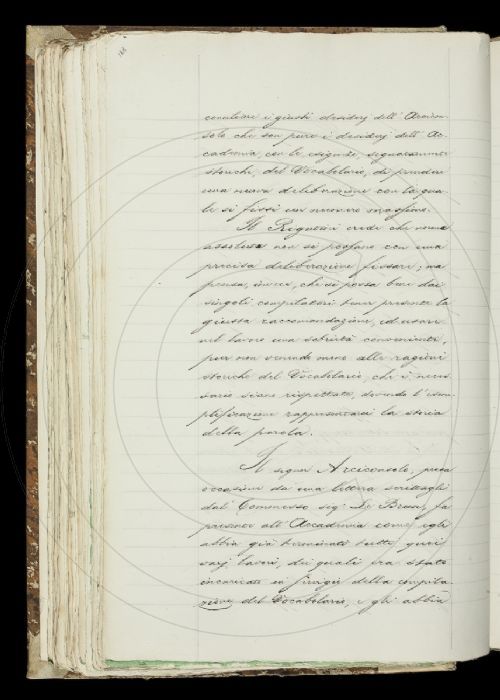 168
conciliare i giusti desiderj dell' Arcicon-
solo che son pure i desiderj dell' Ac-
cademia, con le esigenze, segnatamente
storiche, del Vocabolario, di prendere
una nuova deliberazione con la qua-
le si fissi un numero
Il Rigutini crede che norme
assolute non si possano con una
precisa deliberazione fissare; ma
pensa, invece, che si possa bene dai
singoli compilatori tener presente la
giusta raccomandazione, ed usare
nel lavoro una sobrietà conveniente,
pur non venendo meno alle ragioni
storiche del Vocabolario, che è neces-
sario siano rispettate, dovendo l'esem-
plificazione rappresentarci la storia
della parola.
Il signor Arciconsolo, presa
occasione da una lettera scrittagli
dal Commesso sig. Del Bruni, fa
presente all' Accademia come egli
abbia già terminato tutti quei
varj lavori, dei quali era stato
incaricato in servigio della compila-
zione del Vocabolario, e gli abbia